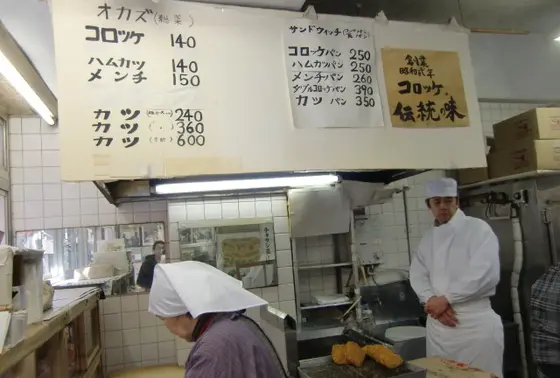 オカズ(惣菜)
コロッケ 140
ハムカツ 140
メンチ 150
カツ 240
カツ 360
カツ 600
サンドウィッチ
コロッケパン 250
ハムカツパン 250
メンチパン 260
ダブルコロッケパン 390
カツパン 350
創業
昭和弐年
コロッケ
伝統の味